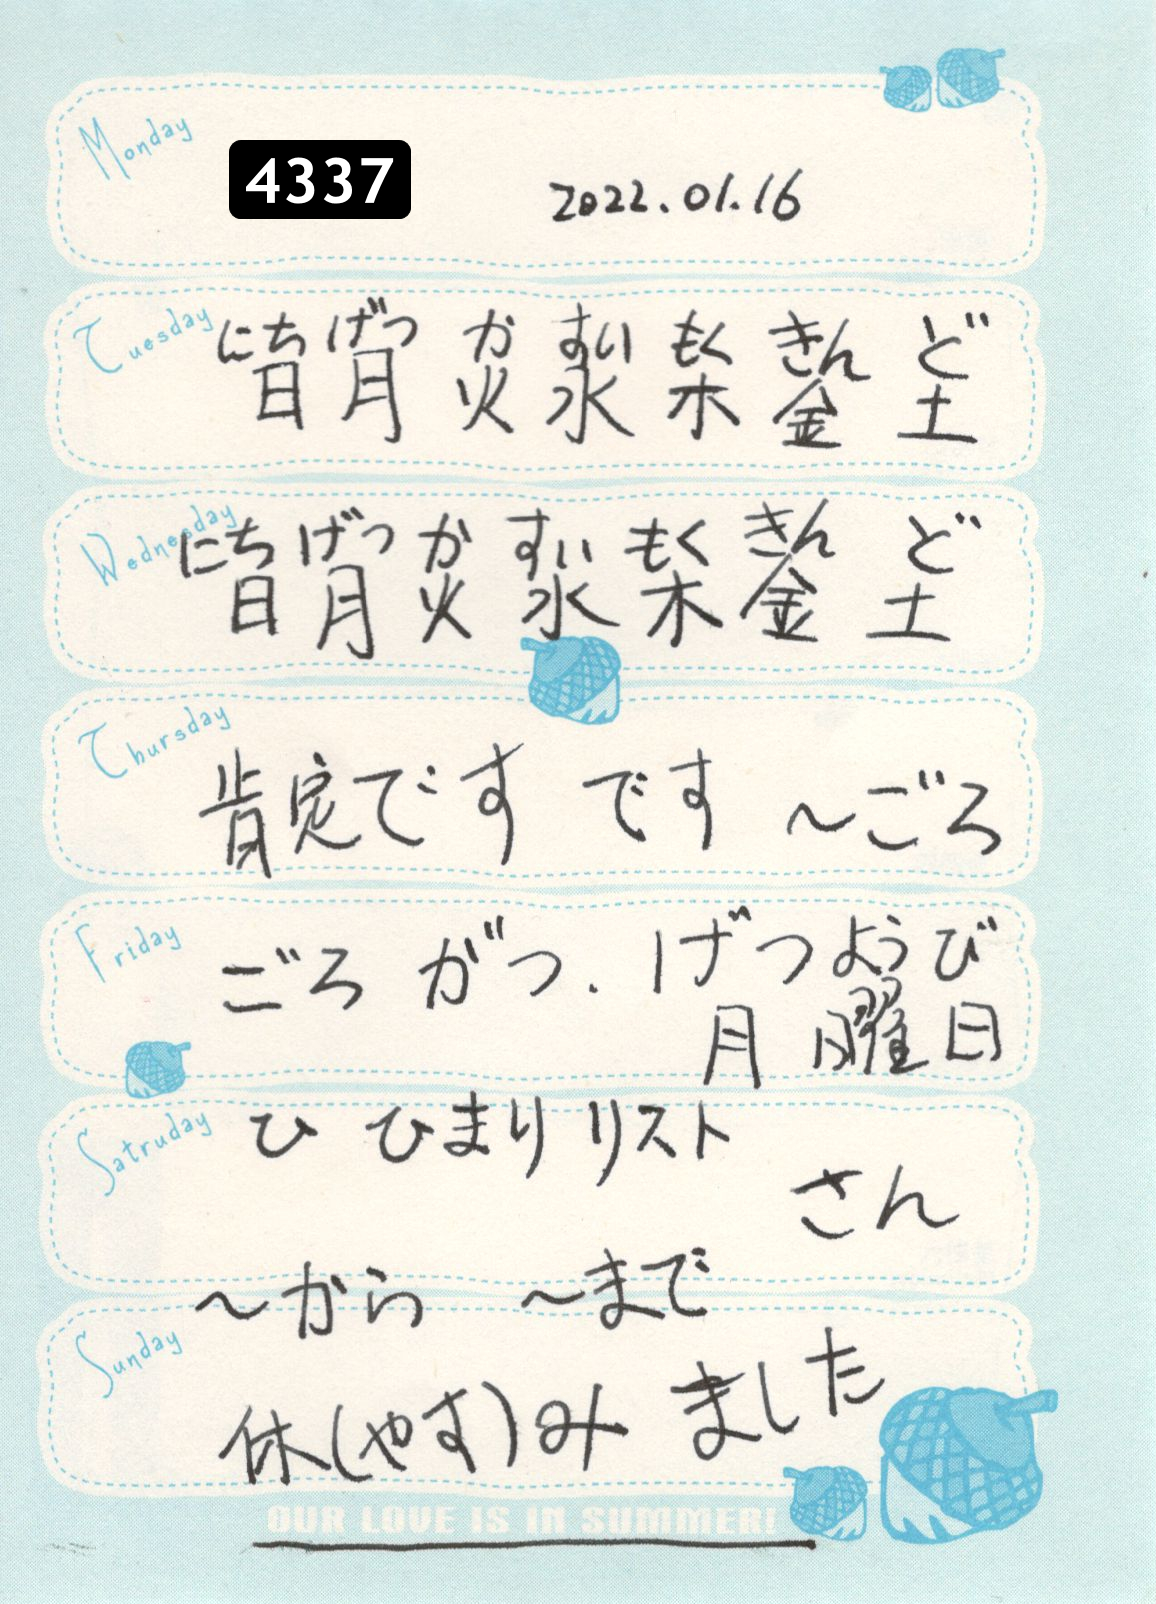 Monday
4337 2022.01.16
Tuesday
にち げつ か すい もく きん ど
日 月 火 水 木 金 土
Wednesday
にち げつ か すい もく きん ど
日 月 火 水 木 金 土
Thursday
肯定です です ～ごろ
Friday
ごろ がつ. げつようび
月 曜日
Satruday
ひ ひまり リスト
さん
～から ～まで
Sunday
休(やす)み ました
OUR LOVE IS IN SUMMER!